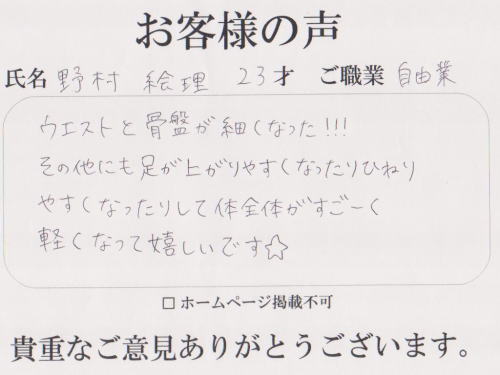 お客様の声
氏名 野村 絵理 23才 ご職業 自由業
ウエストと骨盤が細くなった!!!
その他にも足が上がりやすくなったりひねり
やすくなったりして体全体がすごーく
軽くなって嬉しいです☆
□ ホームページ掲載不可
貴重なご意見ありがとうございます。